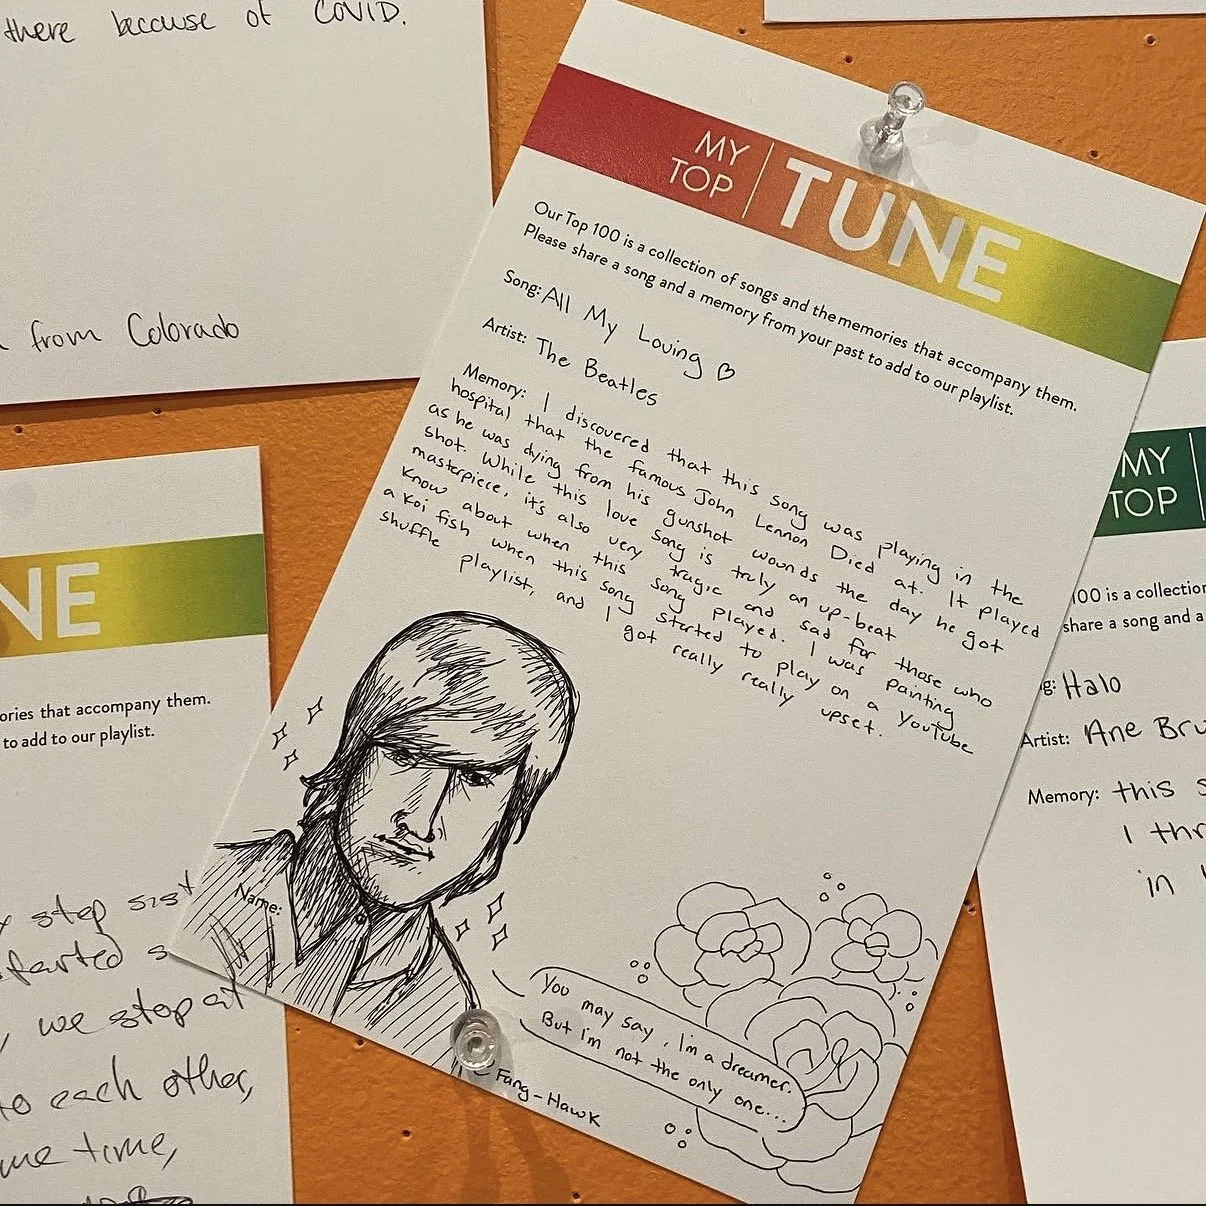 there because of COVID.
from Colorado
MY
TOP
TUNE
Our Top 100 is a collection of songs and the memories that accompany them.
Please share a song and a memory from your past to add to our playlist.
Song: All My Loving
Artist: The Beatles
Memory: I discovered that this song was playing in the
hospital that the famous John Lennon Died at. It played
as he was dying from his gunshot wounds the day he got
shot. While this love song is truly an up-beat
masterpiece, it's also very tragic and sad for those who
know about when this song played. I was painting
a koi fish when this song started to play on a YouTube
shuffle playlist, and I got really really upset.
Name:
You may say, I'm a dreamer.
But i'm not the only one...
Fang-Hawk
NE
ories that accompany them.
to add to our playlist.
step sist
farted s
we stop at
to each other,
me time,
MY
TOP
100 is a collection
share a song and a
g: Halo
Artist: Ane Bru
Memory: this s
I thr
in